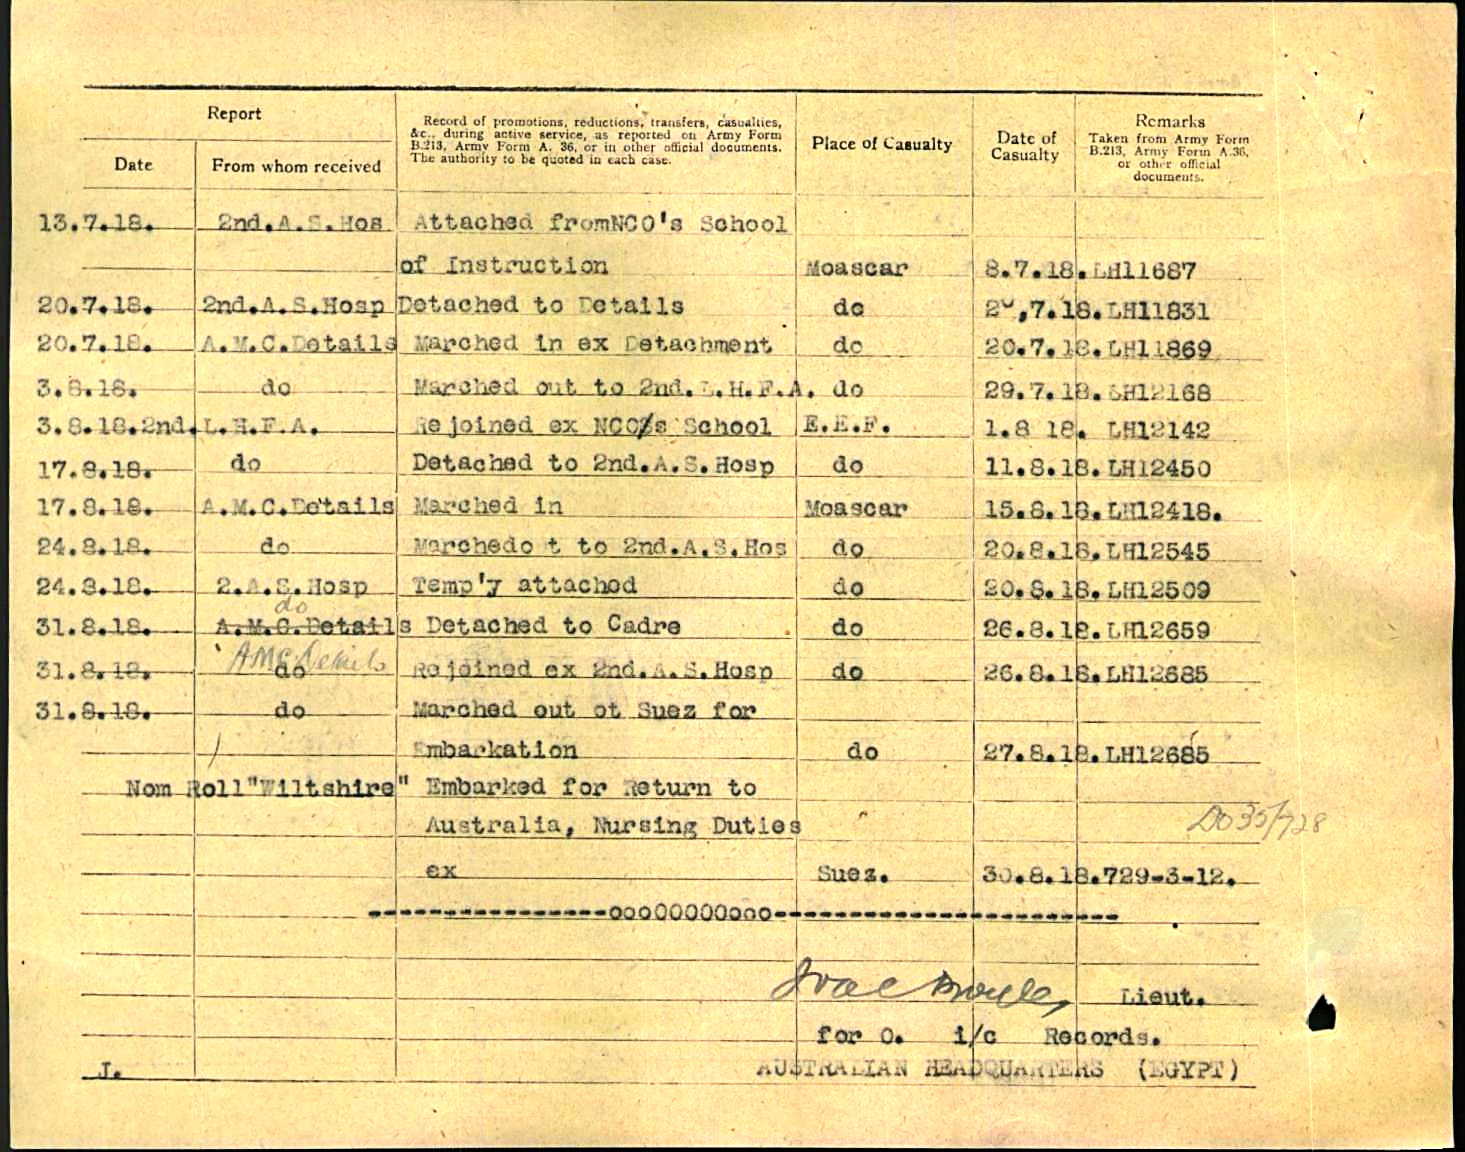 Report
Record of promotions, reductions, transfers, casualties,
&c., during active service, as reported on Army Form
B.213, Army Form A. 36, or in other official documents.
The authority to be quoted in each case.
Place of Casualty
Date of
Casualty
Remarks
Taken from Army Form
B.213, Army Form A.36,
or other official
documents.
Date
From whom received
13.7.18. 2nd.A.S.Hos Attached fromNCO's School
of Instruction Moascar 8.7.18. LH11687
20.7.18. 2nd.A.S.Hosp Detached to Details do 20,7.18. LH11831
20.7.18. A.M.C.Details Marched in ex Detachment do 20.7.18. LH11869
3.8.18. do Marched out to 2nd.L.H.F.A. do 29.7.18. LH12168
3.8.18. 2nd.L.H.F.A. Rejoined ex NCO/s School E.E.F. 1.8 18. LH12142
17.8.18. do Detached to 2nd.A.S.Hosp do 11.8.18. LH12450
17.8.18. A.M.C.Details Marched in Moascar 15.8.18. LH12418.
24.8.18. do Marchedo t to 2nd.A.S.Hos do 20.8.18. LH12545
24.8.18. 2.A.S.Hosp Temp'y attached do 20.8.18. LH12509
do
31.8.18. A.M.C.Details Detached to Cadre do 26.8.18. LH12659
AMC Details
31.8.18. do Rejoined ex 2nd.A.S.Hosp do 26.8.18. LH12685
31.8.18. do Marched out ot Suez for
Embarkation do 27.8.18. LH12685
Nom Roll "Wiltshire" Embarked for Return to
Australia, Nursing Duties
DO35/728
ex Suez. 30.8.18. 729-3-12.
----------------ooo00000ooo-----------------------
Lieut.
for O. i/c Records.
J. AUSTRALIAN HEADQUARTERS (EGYPT)